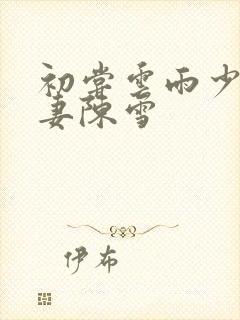 初尝雲雨少
妻陳雪
伊布